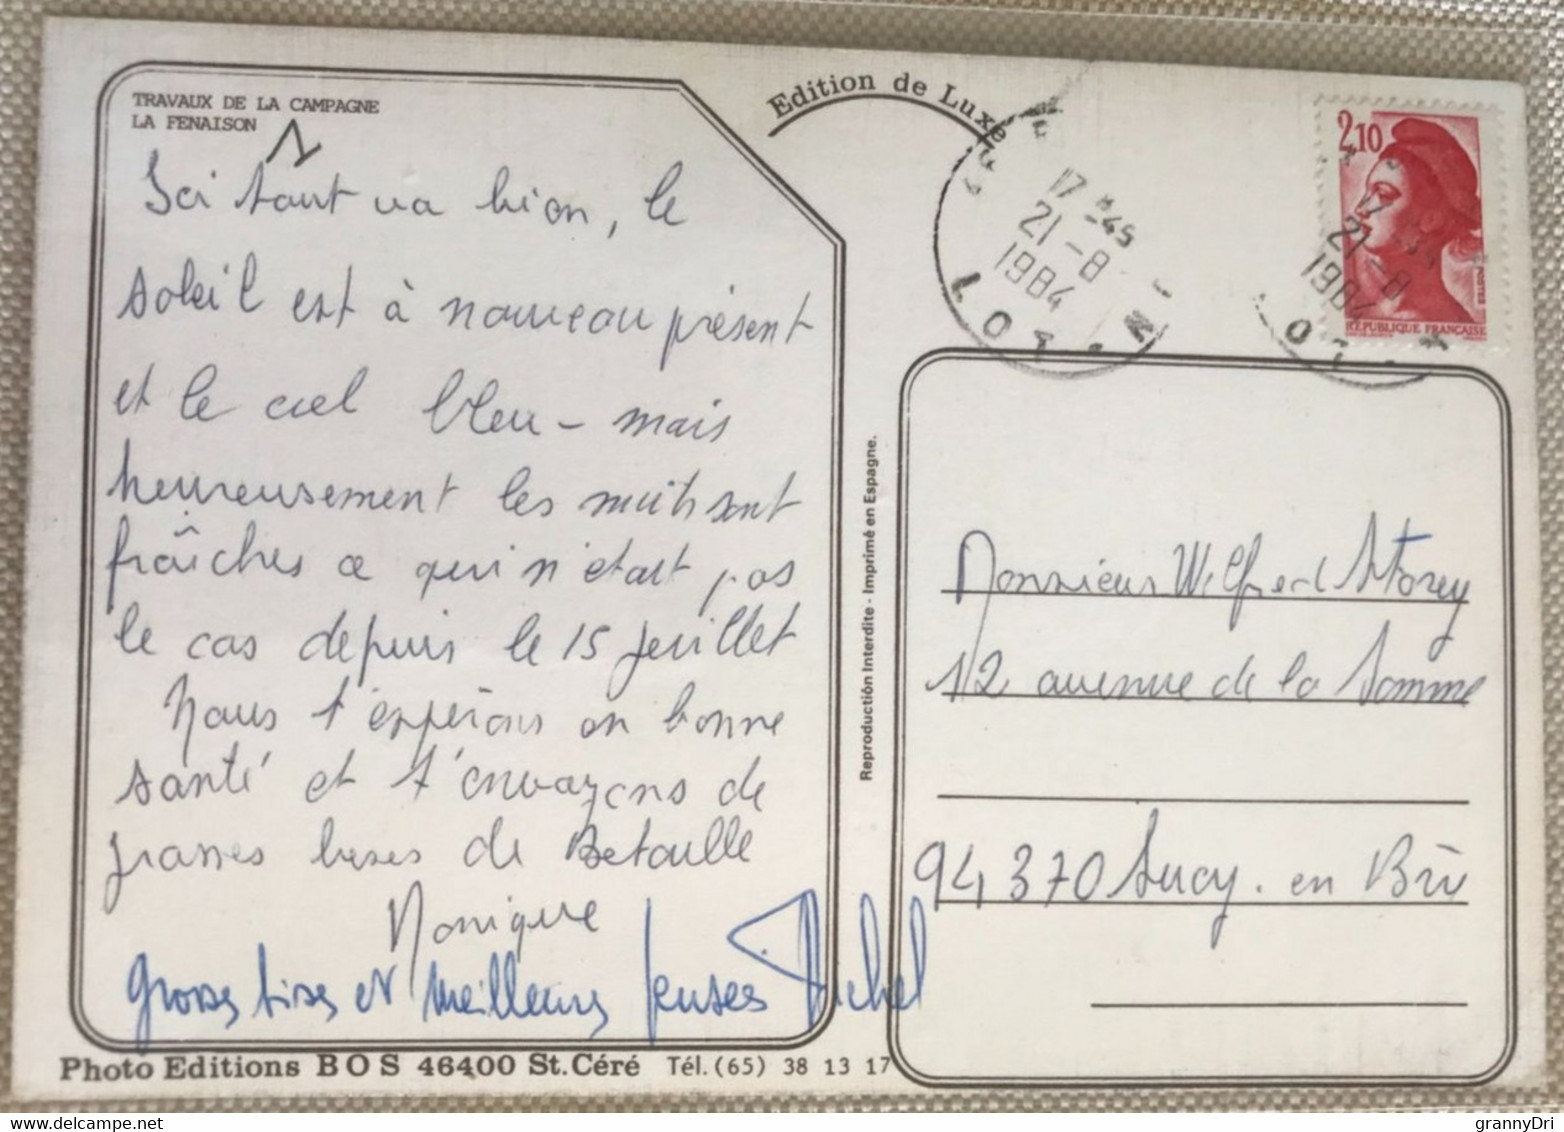 TRAVAUX DE LA CAMPAGNE
LA FENAISON
Ici tout va bien, le
soleil est à nouveau présent
et le ciel bleu - mais
heureusement les nuits sont
fraîches ce qui n'était pas
le cas depuis le 15 juillet
Nous t'espérons en bonne
santé et t'envoyons de
grosses bises de Betaille
Monique
grosses bises et meilleures pensées Michel
Photo Editions BOS 46400 St.Céré Tél. (65) 38 13 17
Edition de Luxe
Reproduction Interdite - Imprimé en Espagne.
17 H45
21-8
1984
LOT
2,10
POSTES
REPUBLIQUE FRANÇAISE
21-8
1984
Monsieur Wilfred Storey
12 avenue de la Somme
94370 Sucy. en Brie
© grannyDri